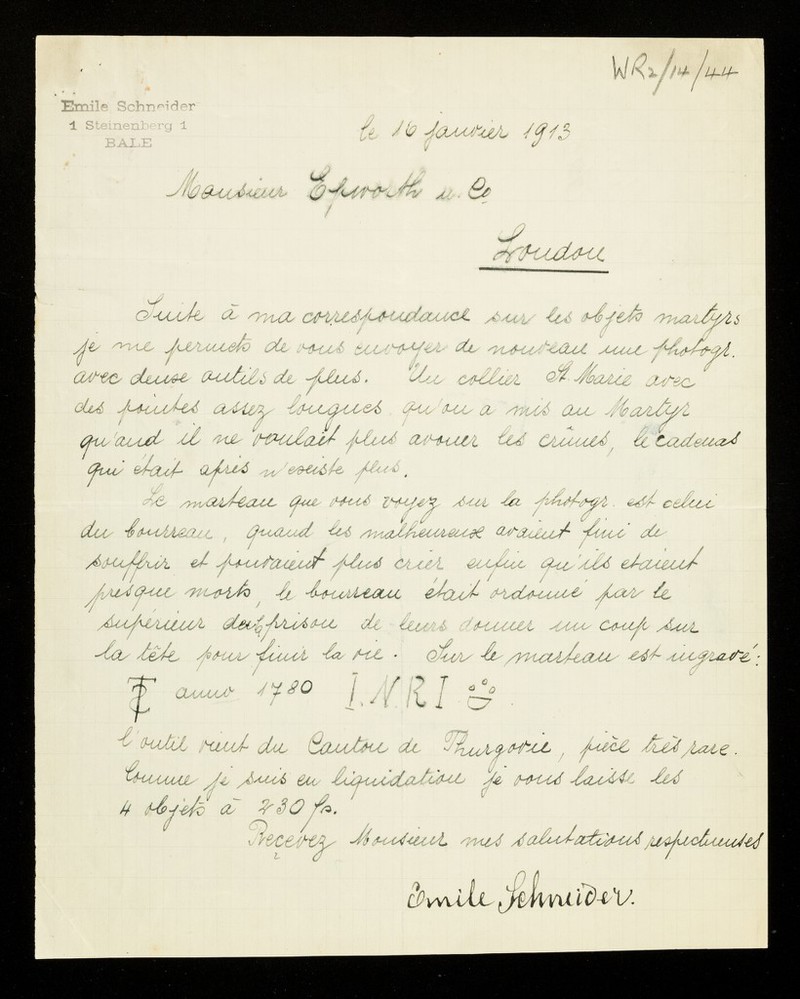 WR2/14/44
Emile Schneider
1 Steinenberg 1
BALE
le 16 janvier 1913
Monsieur Epworth u. Co
London
Suite à ma correspondance sur les objets martyrs
je me permets de vous envoyer de nouveau une photogr.
avec deuxe outils de plus. Un collier St. Marie avec
des pointes assez longues qu'on a mis au Martyr
qu'and il ne voulait plus avouer les crîmes, le cadenas
qui était après n'existe plus.
Le marteau que vous voyez sur la photogr. est celui
du bourreau, quand les malheureux avaient fini de
souffrir et pouvaient plus crier enfin qu'ils etaient
presque morts, le bourreau était ordonné par le
supérieur de la prison de leurs donner un coup sur
la tête pour finir la vie. Sur le marteau est ingravé:
anno 1780 I.N.R.I
l'outil vient du Canton de Thurgovie, pièce très rare.
Comme je suis en liquidation je vous laisse les
4 objets à 230 fs.
Reçevez Monsieur mes salutations respectueuses
Emile Schneider.